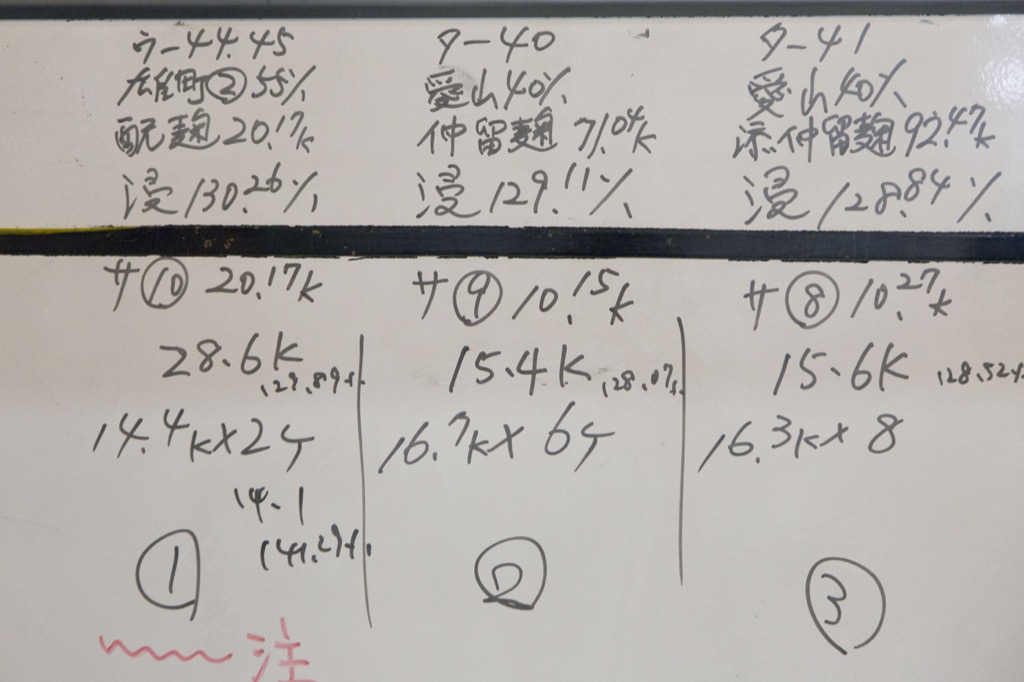 ウー44.45
雄町②55%
酛麹20.17k
浸130.26%
ター40
愛山40%
仲留麹71.04k
浸129.11%
ター41
愛山40%
添仲留麹92.47k
浸128.84%
サ⑩ 20.17k
28.6K
129.89%
14.4k×2ケ
14.1
141.29%
①
サ⑨ 10.15k
15.4K
128.07%
16.7k×6ケ
②
サ⑧ 10.27k
15.6K 128.52%
16.3k×8
③
注